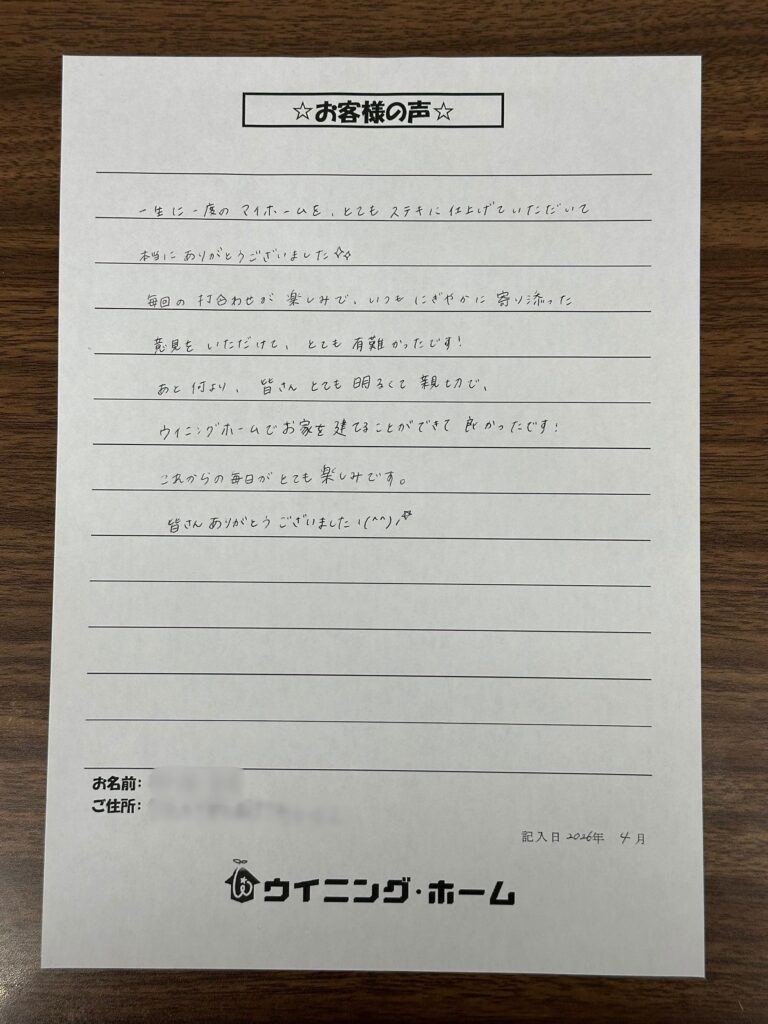 ☆お客様の声☆
一生に一度の マイホームを、とても ステキに 仕上げていただいて
本当に ありがとうございました☆☆
毎回の 打合わせが 楽しみで、いつも にぎやかに 寄り添った
意見を いただけて、とても 有難かったです!
あと 何より、皆さん とても 明るくて 親切で、
ウイニングホームでお家を建てることができて 良かったです!
これからの毎日がとても楽しみです。
皆さん ありがとう ございましたヽ(^^)ノ☆
お名前:
ご住所:
記入日 2026年 4月
ウイニング・ホーム